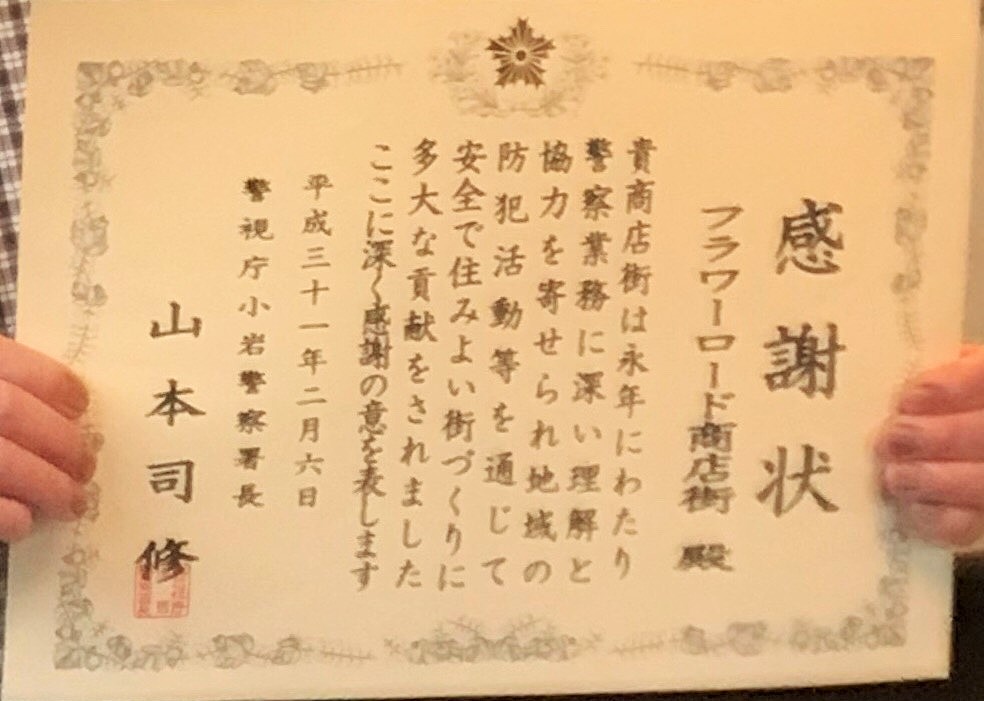 感謝状
フラワーロード商店街 殿
貴商店街は永年にわたり
警察業務に深い理解と
協力を寄せられ地域の
防犯活動等を通じて
安全で住みよい街づくりに
多大な貢献をされました
ここに深く感謝の意を表します
平成三十一年二月六日
警視庁小岩警察署長
山本司修